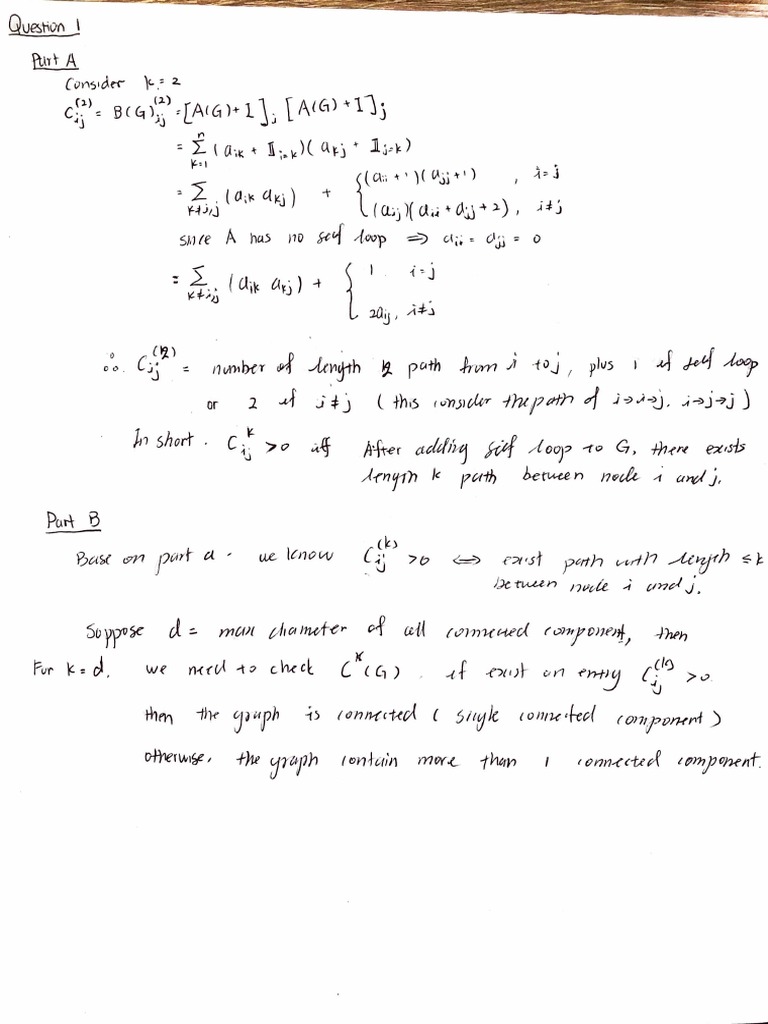 Question 1
Part A
Consider k = 2
C_{ij}^{(2)} = B(G)_{ij}^{(2)} = [A(G)+I]_{i} [A(G)+I]_{j}
= \sum_{k=1}^{n} (a_{ik} + 𝟙_{i=k})(a_{kj} + 𝟙_{j=k})
= \sum_{k≠i,j} (a_{ik} a_{kj}) + { (a_{ii}+1)(a_{jj}+1) , i=j
(a_{ij})(a_{ii} + a_{jj} + 2), i≠j
since A has no self loop ⇒ a_{ii} = a_{jj} = 0
= \sum_{k≠i,j} (a_{ik} a_{kj}) + { 1 i=j
2a_{ij}, i≠j
∴ C_{ij}^{(2)} = number of length 2 path from i to j, plus 1 if self loop
or 2 if i≠j (this consider the path of i→i→j, i→j→j)
In short. C_{ij}^{k} >0 iff After adding self loop to G, there exists
length k path between node i and j.
Part B
Base on part a. we know C_{ij}^{(k)} >0 ⇔ exist path with length ≤ k
between node i and j.
Suppose d = max diameter of all connected component, then
For k = d, we need to check C^{k}(G). if exist an entry C_{ij}^{(k)} >0
then the graph is connected (single connected component)
otherwise, the graph contain more than 1 connected component.